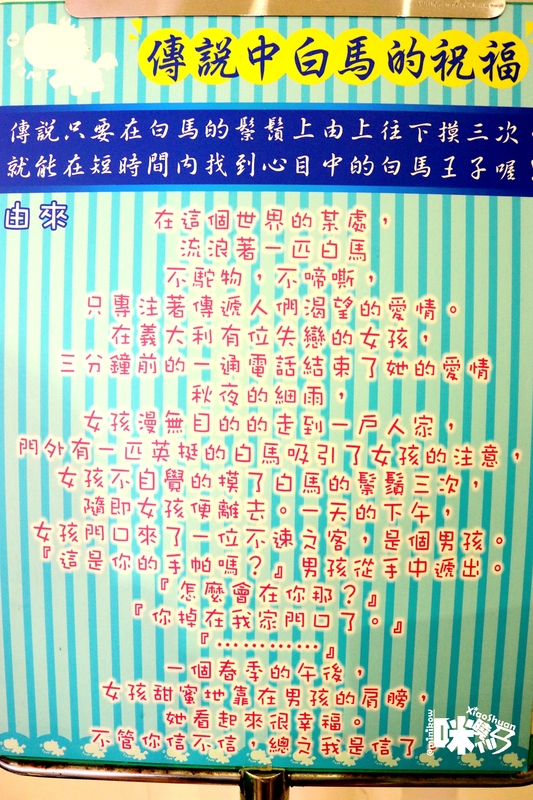 傳說中白馬的祝福
傳說只要在白馬的鬃鬚上由上往下摸三次，
就能在短時間內找到心目中的白馬王子喔！
由來
在這個世界的某處，
流浪著一匹白馬
不駝物，不啼嘶，
只專注著傳遞人們渴望的愛情。
在義大利有位失戀的女孩，
三分鐘前的一通電話結束了她的愛情
秋夜的細雨，
女孩漫無目的的走到一戶人家，
門外有一匹英挺的白馬吸引了女孩的注意，
女孩不自覺的摸了白馬的鬃鬚三次，
隨即女孩便離去。一天的下午，
女孩門口來了一位不速之客，是個男孩。
『這是你的手帕嗎？』男孩從手中遞出。
『怎麼會在你那？』
『你掉在我家門口了。』
『…………』
一個春季的午後，
女孩甜蜜地靠在男孩的肩膀，
她看起來很幸福。
不管你信不信，總之我是信了
XiaoShuan